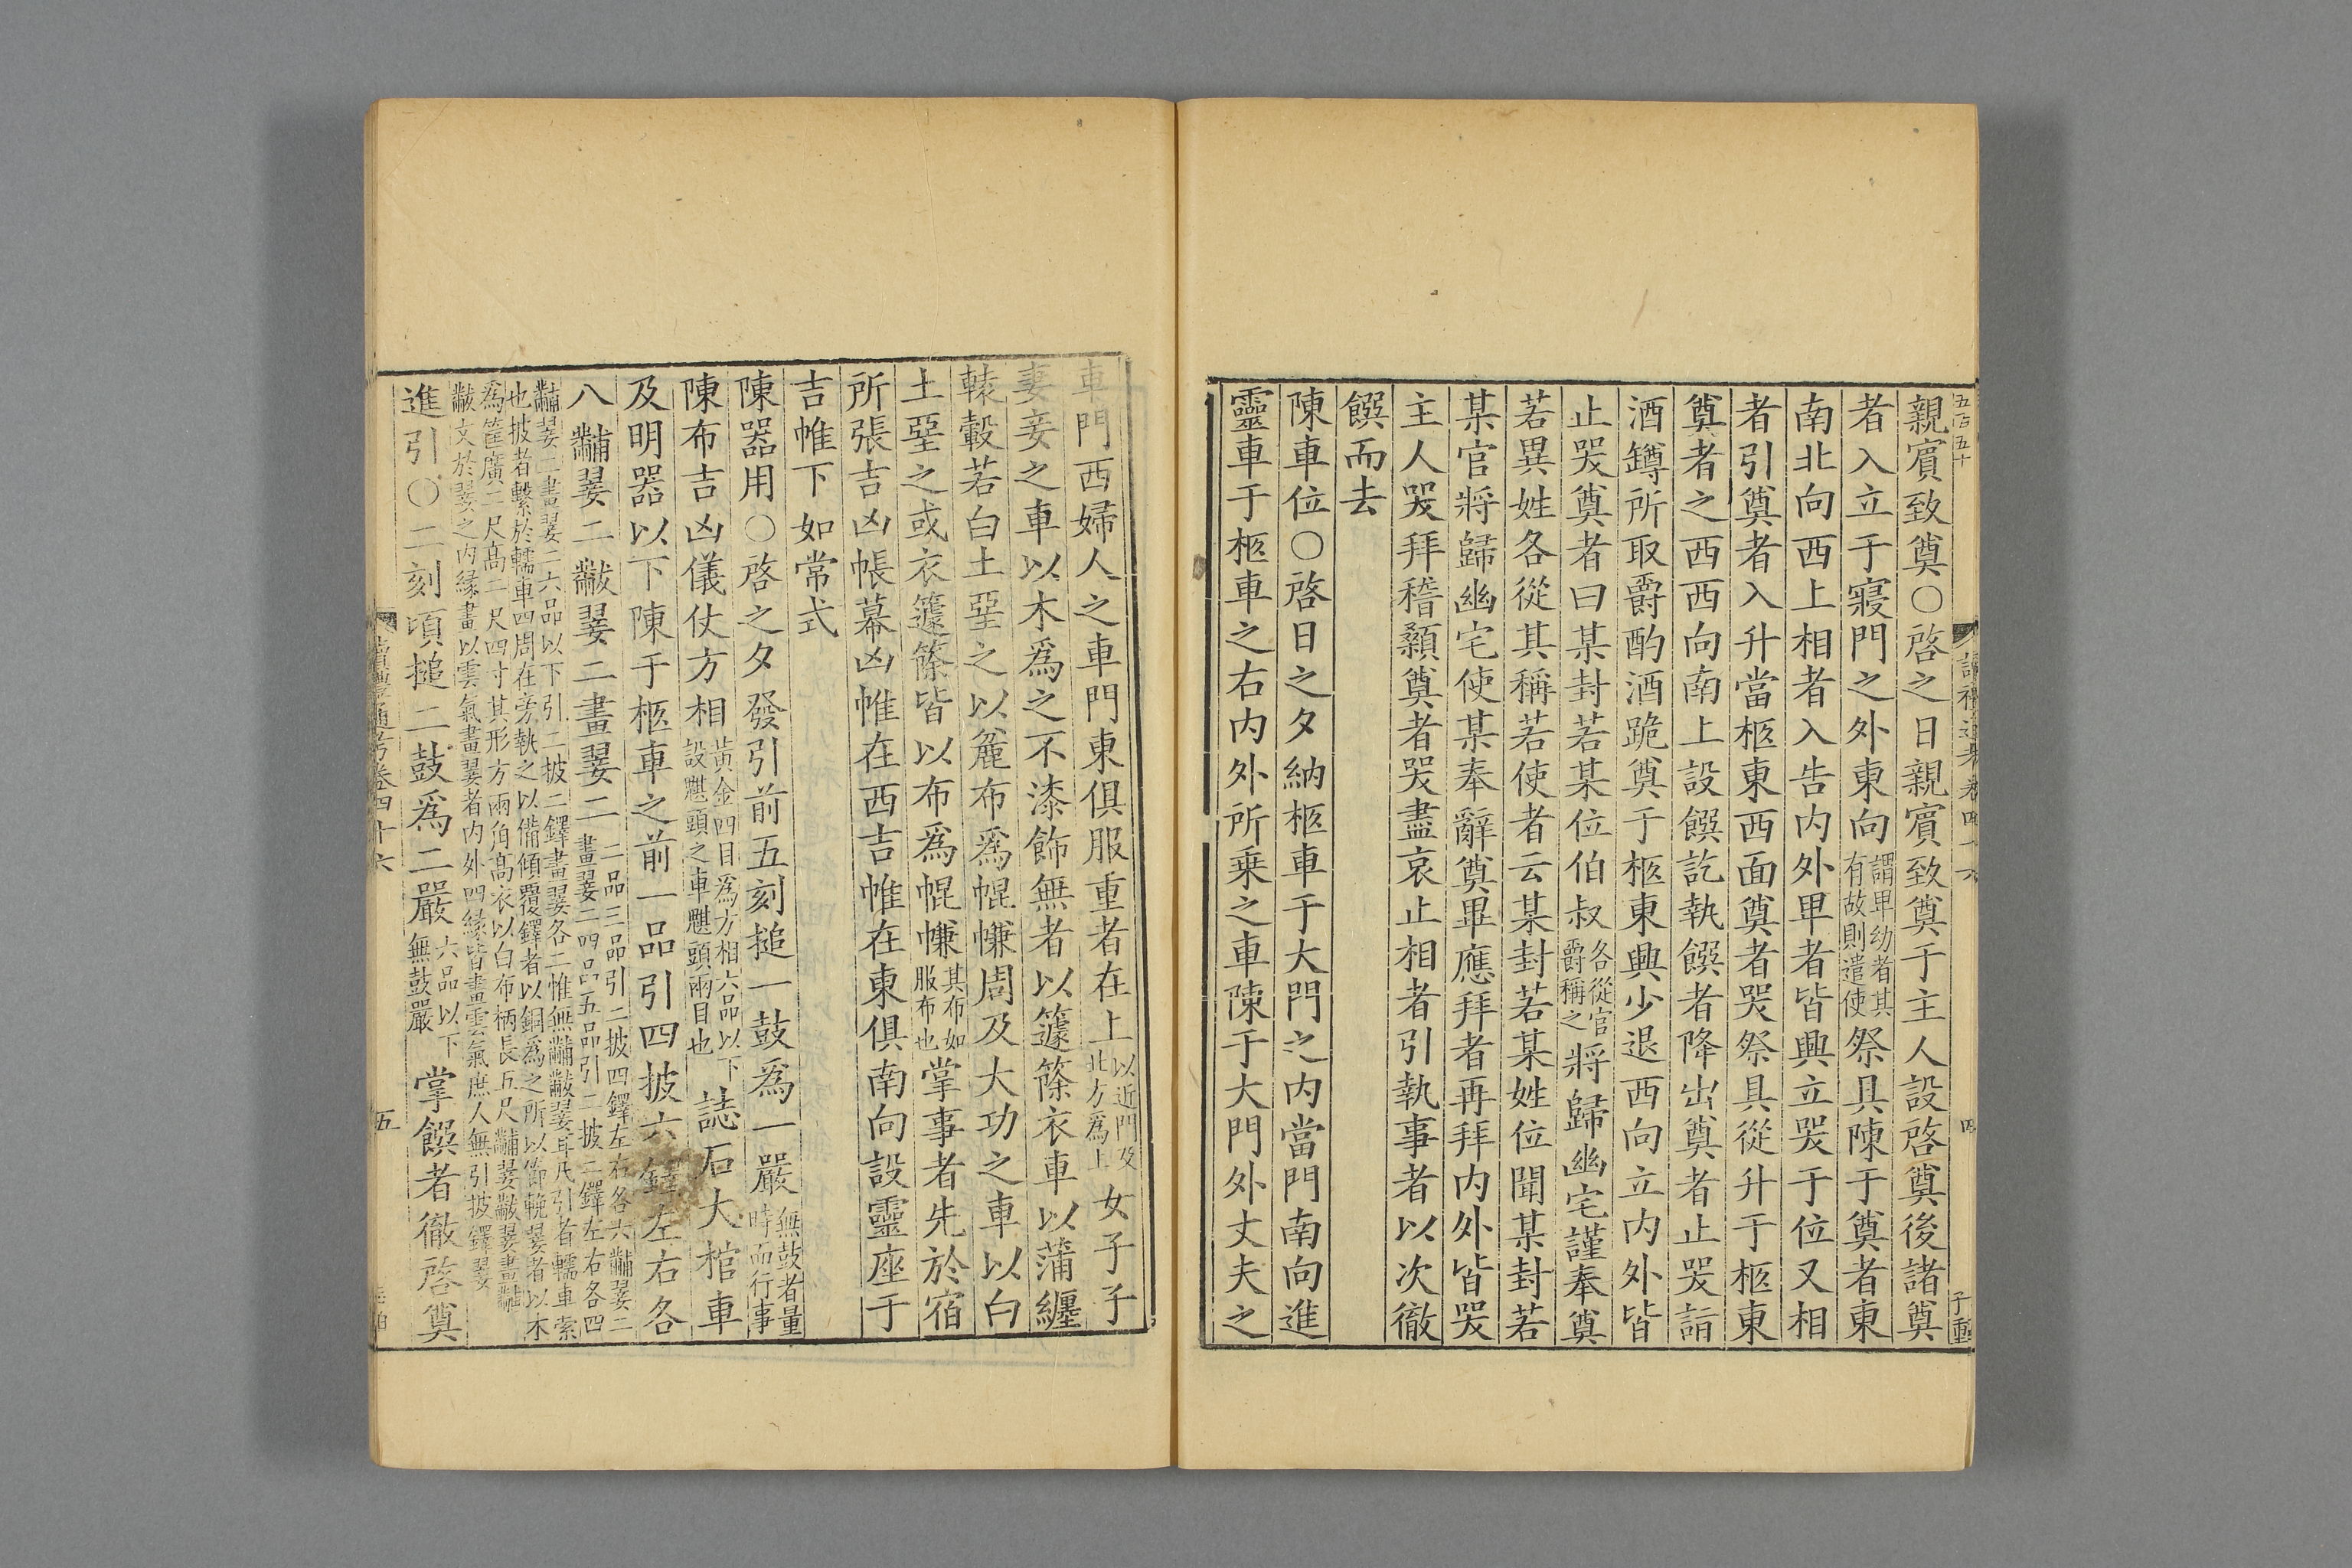 親賓致奠〇啓之日親賓致奠于主人設啓奠後諸奠
者入立于寢門之外東向謂卑幼者其有故則遣使祭具陳于奠者東
南北向西上相者入告内外卑者皆興立哭于位又相
者引奠者入升當柩東西面奠者哭祭具從升于柩東
奠者之西西向南上設饌訖執饌者降出奠者止哭詣
酒罇所取爵酌酒跪奠于柩東興少退西向立内外皆
止哭奠者曰某封若某位伯叔各從官爵稱之將歸幽宅謹奉奠
若異姓各從其稱若使者云某封若某姓位聞某封若
某官將歸幽宅使某奉辭奠畢應拜者再拜内外皆哭
主人哭拜稽顙奠者哭盡哀止相者引執事者以次徹
饌而去
陳車位〇啓日之夕納柩車于大門之内當門南向進
靈車于柩車之右内外所乗之車陳于大門外丈夫之
車門西婦人之車門東俱服重者在上以近門及北方為上女子子
妻妾之車以木爲之不漆飾無者以籧篨衣車以蒲纒
轅轂若白土堊之以麄布爲幌㡘周及大功之車以白
土堊之或衣籧篨皆以布爲幌㡘其布如服布也掌事者先於宿
所張吉凶帳幕凶帷在西吉帷在東俱南向設靈座于
吉帷下如常式
陳器用〇啓之夕發引前五刻搥一鼓爲一嚴無鼓者量時而行事
陳布吉凶儀仗方相黃金四目爲方相六品以下設魌頭之車魌頭兩目也誌石大棺車
及明器以下陳于柩車之前一品引四披六鐸左右各
八黼翣二黻翣二畫翣二二品三品引二披四鐸左右各六黼翣二畫翣二四品五品引二披二鐸左右各四
黼翣二畫翣二六品以下引二披二鐸畫翣各二惟無黼黻翣耳凡引者轜車索也披者繫於轜車四周在旁執之以備傾覆鐸者以銅爲之所以節輓翣者以木
爲筐廣二尺高二尺四寸其形方兩角高衣以白布柄長五尺黼翣黻翣畫黼黻文於翣之内緣畫以雲氣畫翣者内外四緣皆畫雲氣庶人無引披鐸翣
進引〇二刻頃搥二鼓爲二嚴六品以下無鼓嚴掌饌者徹啓奠
五百五十
讀禮通考卷四十六
四
讀禮通考卷四十六
五